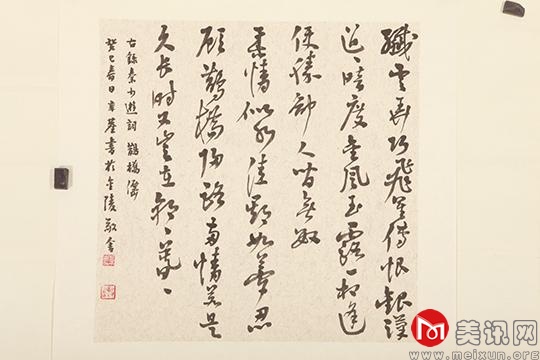 纖雲弄巧飛星傳恨銀漢
迢〻暗度金風玉露一相逢
便勝卻人間無數
柔情似水佳期如夢忍
顧鵲橋歸路兩情若是
久長時又豈在朝〻暮〻
右錄秦少遊詞 鵲橋僊
癸巳春日書於金陵
美讯网
www.meixun.org